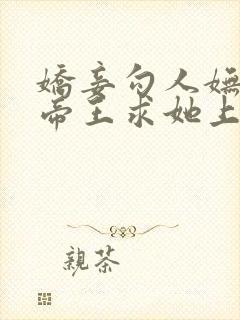 嬌妾勾人嫵
帝王求她上
親茶